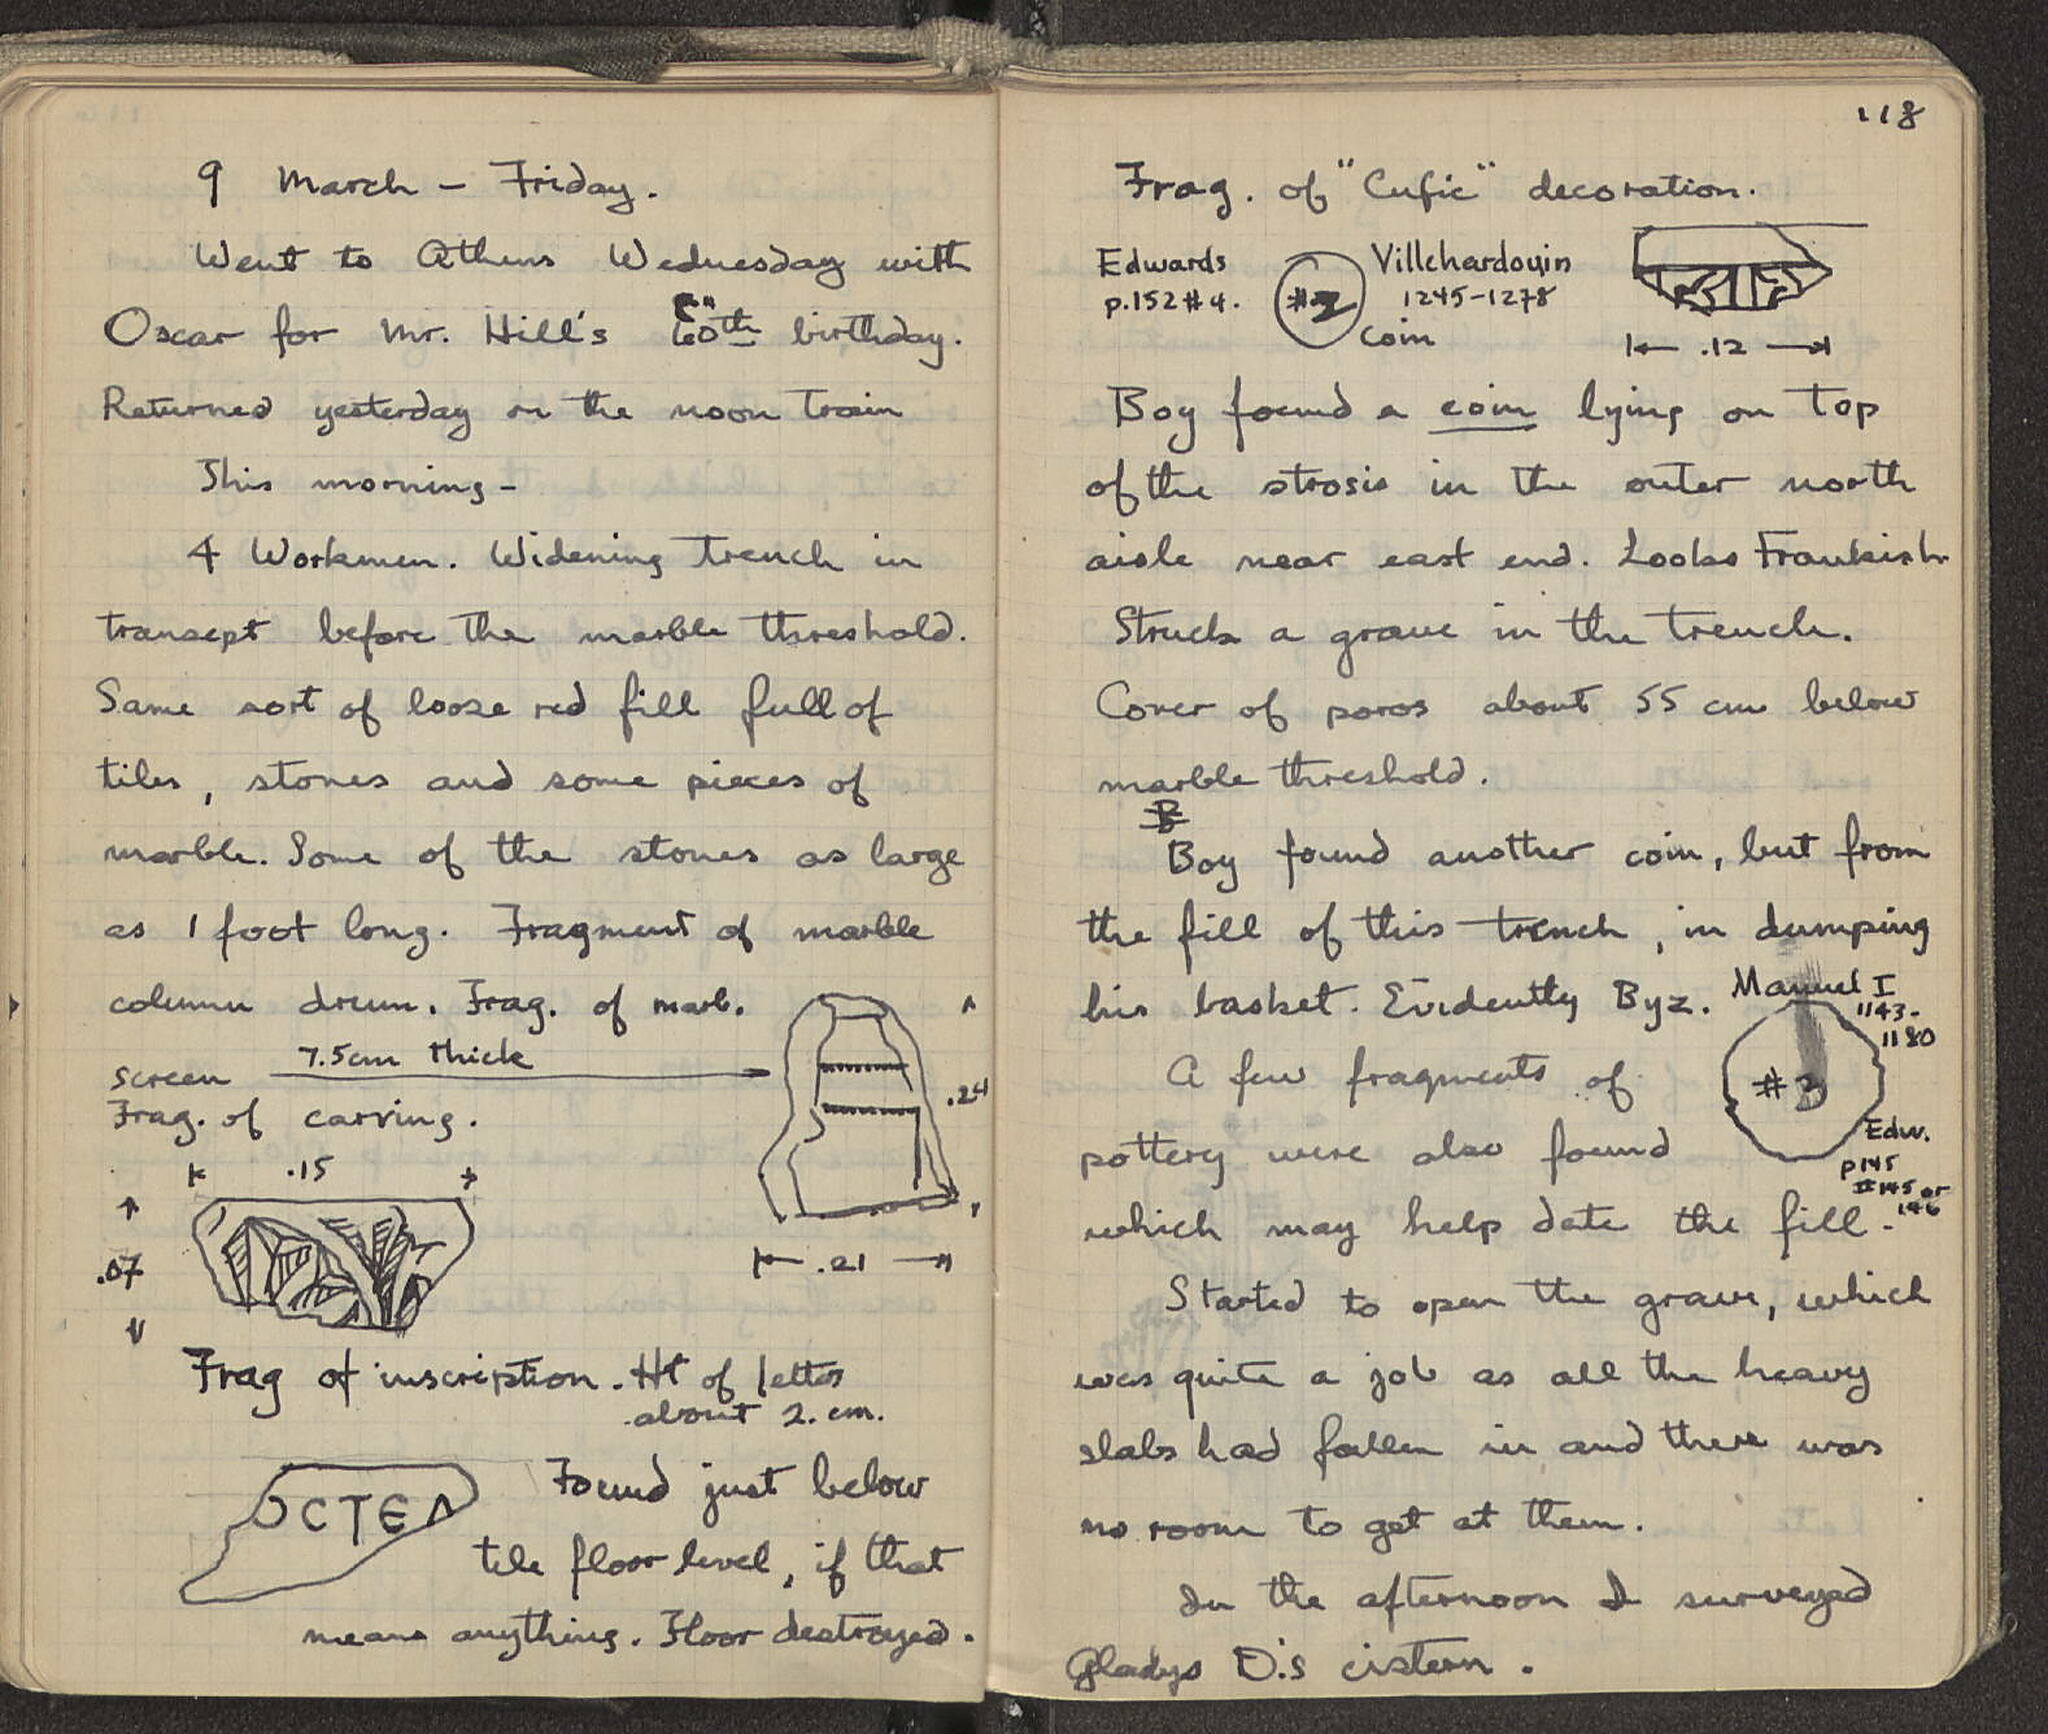 9 March – Friday.
Went to Athens Wednesday with
Oscar for Mr. Hill's 60th birthday.
Returned yesterday on the noon train
This morning –
4 Workmen. Widening trench in
transept before the marble threshold.
Same sort of loose red fill full of
tiles, stones and some pieces of
marble. Some of the stones as large
as 1 foot long. Fragment of marble
column drum. Frag. of marb.
screen 7.5cm thick
.24
.21
Frag. of carving.
.15
.07
Frag of inscription. Ht of letter
about 2. cm.
OCTEA
Found just below
tile floor level, if that
means anything. Floor destroyed.
118
Frag. of "Cufic" decoration.
.12
Edwards
p.152 #4.
#2
Villehardouin
1245-1278
coin
Boy found a coin lying on top
of the strosis in the outer north
aisle near east end. Looks Frankish
Struck a grave in the trench.
Cover of poros about 55 cm below
marble threshold.
B
Boy found another coin, but from
the fill of this trench, in dumping
his basket. Evidently Byz.
Manuel I
1143-
1180
#3
Edw.
p145
#145 or
146
A few fragments of
pottery were also found
which may help date the fill.
Started to open the grave, which
was quite a job as all the heavy
slabs had fallen in and there was
no room to get at them.
In the afternoon I surveyed
Gladys D.'s cistern.